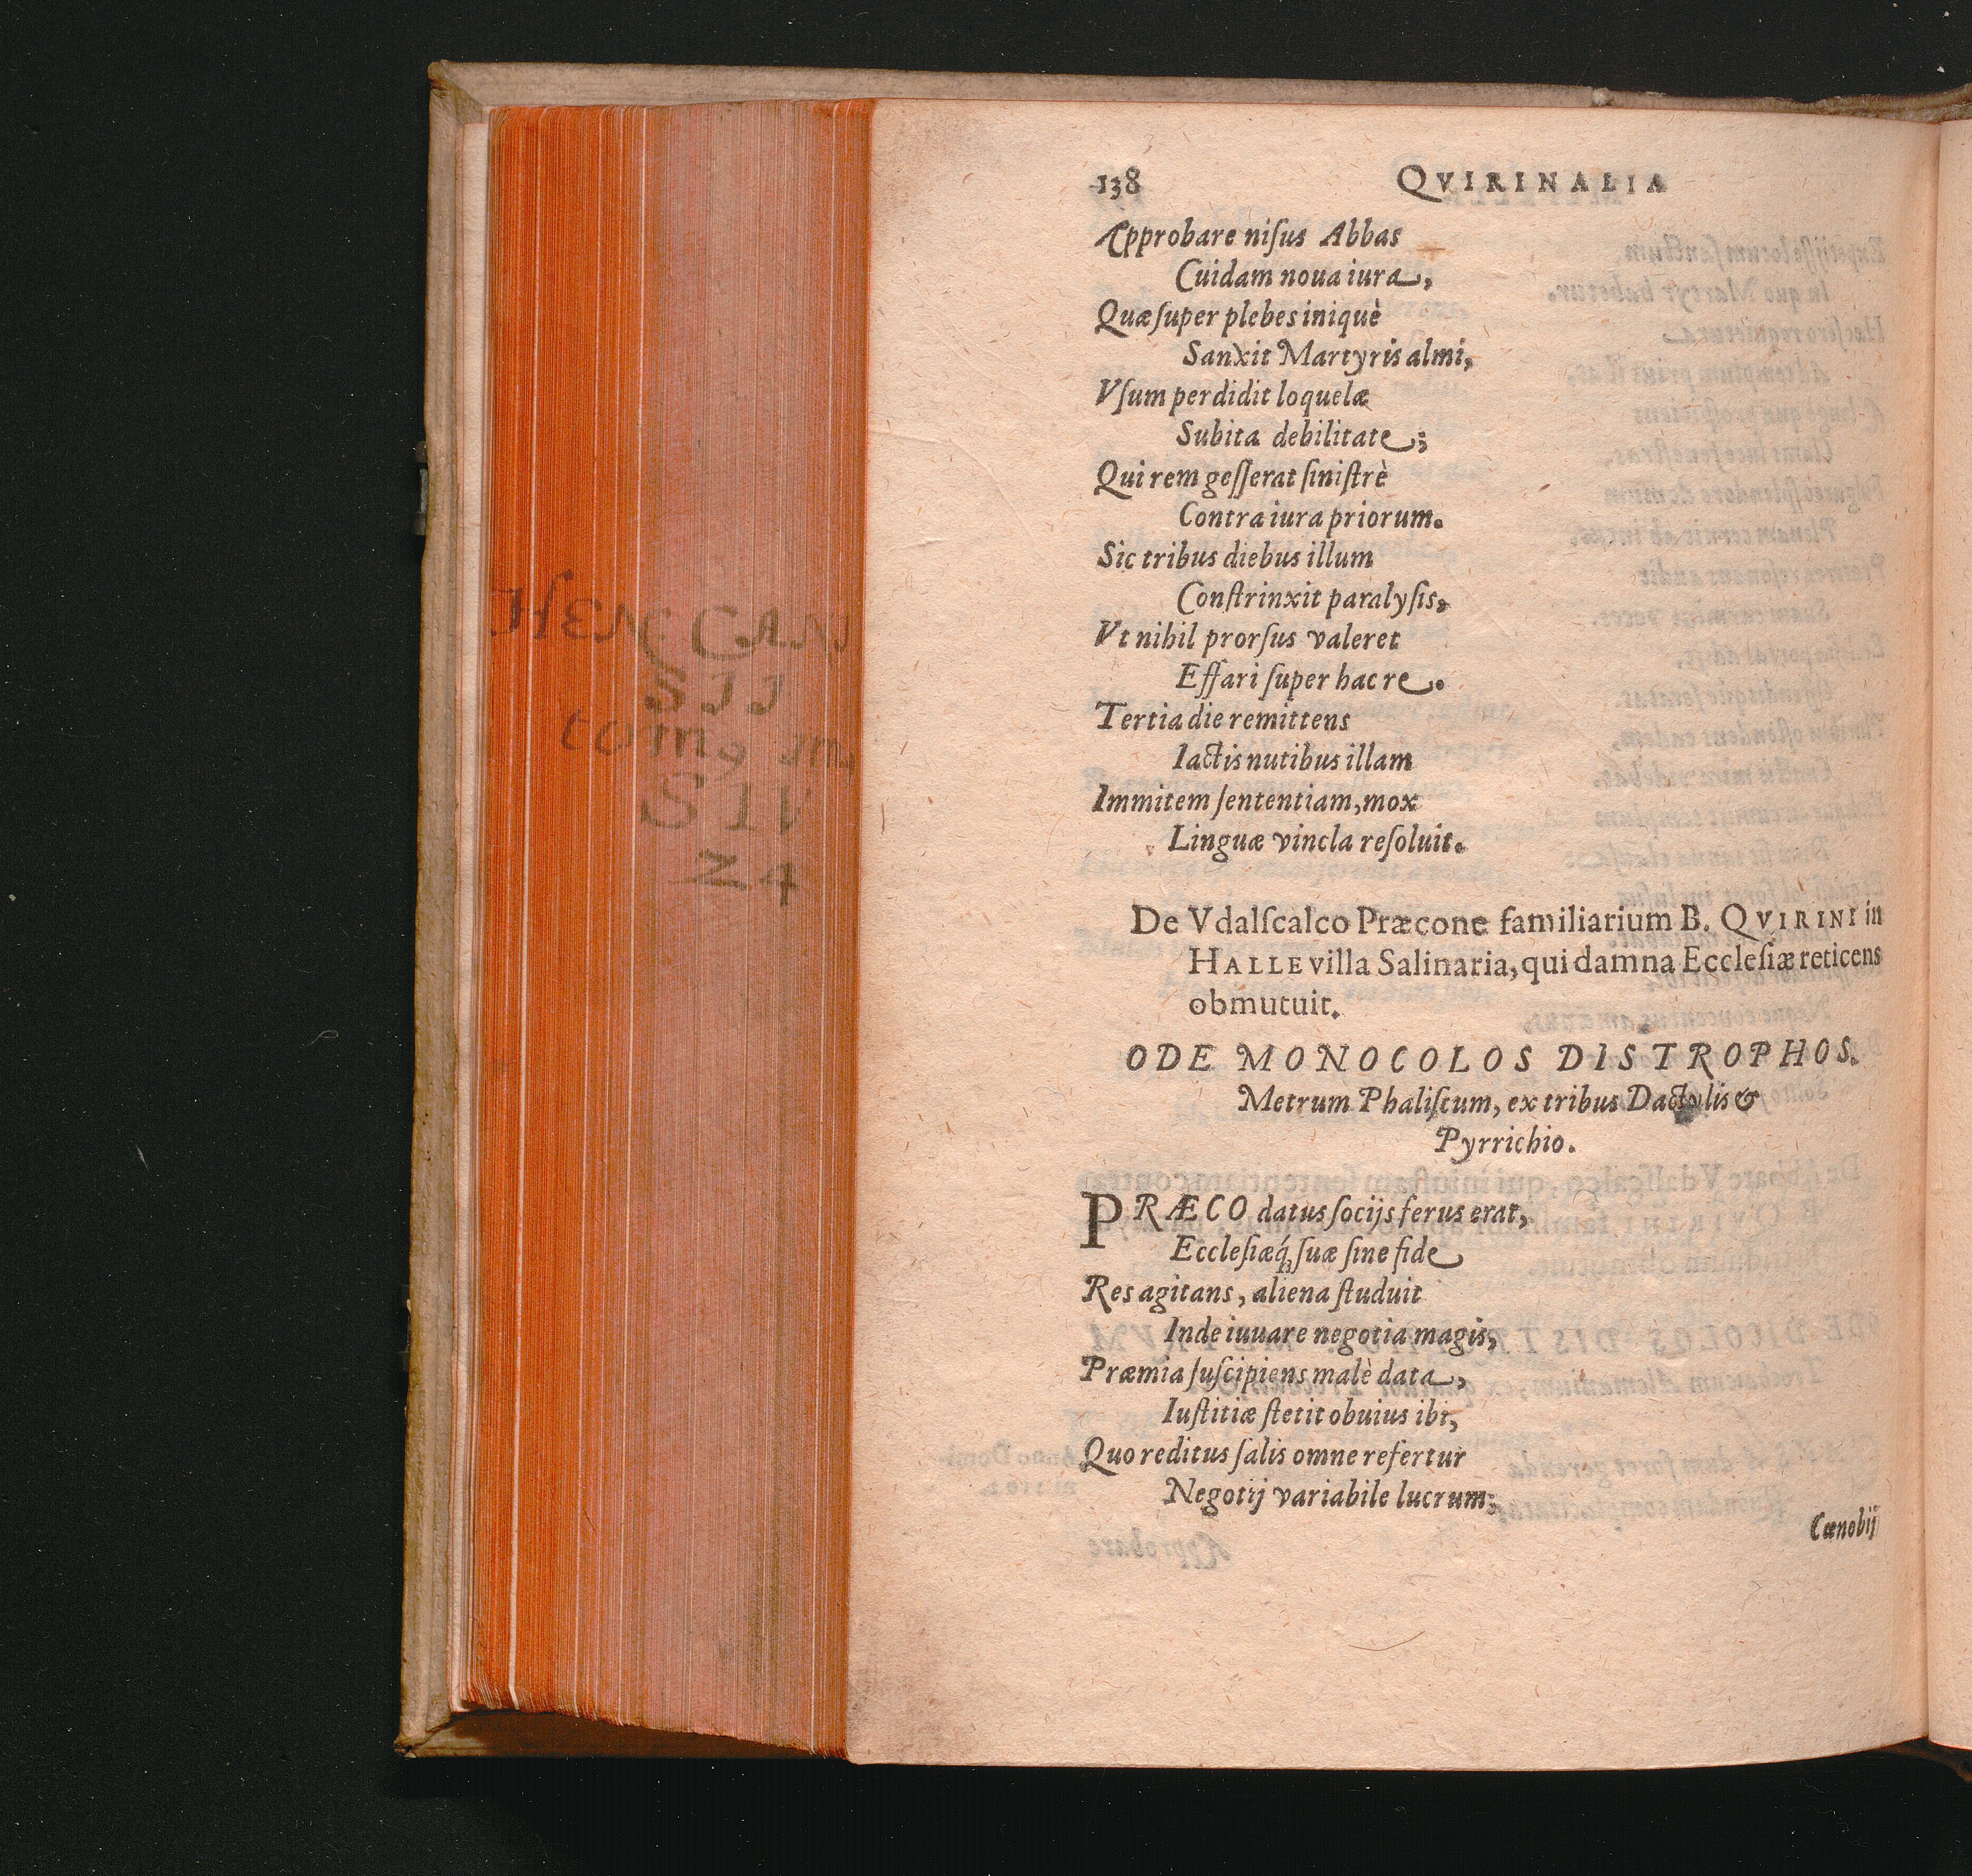 138 QVIRINALIA
Approbare niſus Abbas
Cuidam noua iura,
Quæ ſuper plebes iniquè
Sanxit Martyris almi,
Vſum perdidit loquelæ
Subita debilitate;
Qui rem geſſerat ſiniſtrè
Contra iura priorum.
Sic tribus diebus illum
Conſtrinxit paralyſis,
Vt nihil prorſus valeret
Effari ſuper hac re.
Tertia die remittens
Iactis nutibus illam
Immitem ſententiam, mox
Linguæ vincla reſoluit.
De Vdalſcalco Præcone familiarium B. QVIRINI in
HALLE villa Salinaria, qui damna Eccleſiæ reticens
obmutuit.
ODE MONOCOLOS DISTROPHOS.
Metrum Phaliſcum, ex tribus Dactylis &
Pyrrichio.
PRÆCO datus ſocijs ferus erat,
Eccleſiæq́; ſuæ ſine fide
Res agitans, aliena ſtuduit
Inde iuuare negotia magis,
Præmia ſuſcipiens malè data,
Iuſtitiæ ſtetit obuius ibi,
Quo reditus ſalis omne refertur
Negotij variabile lucrum;
Cœnobij
HEN CAN
SII
tom9
SIV
24